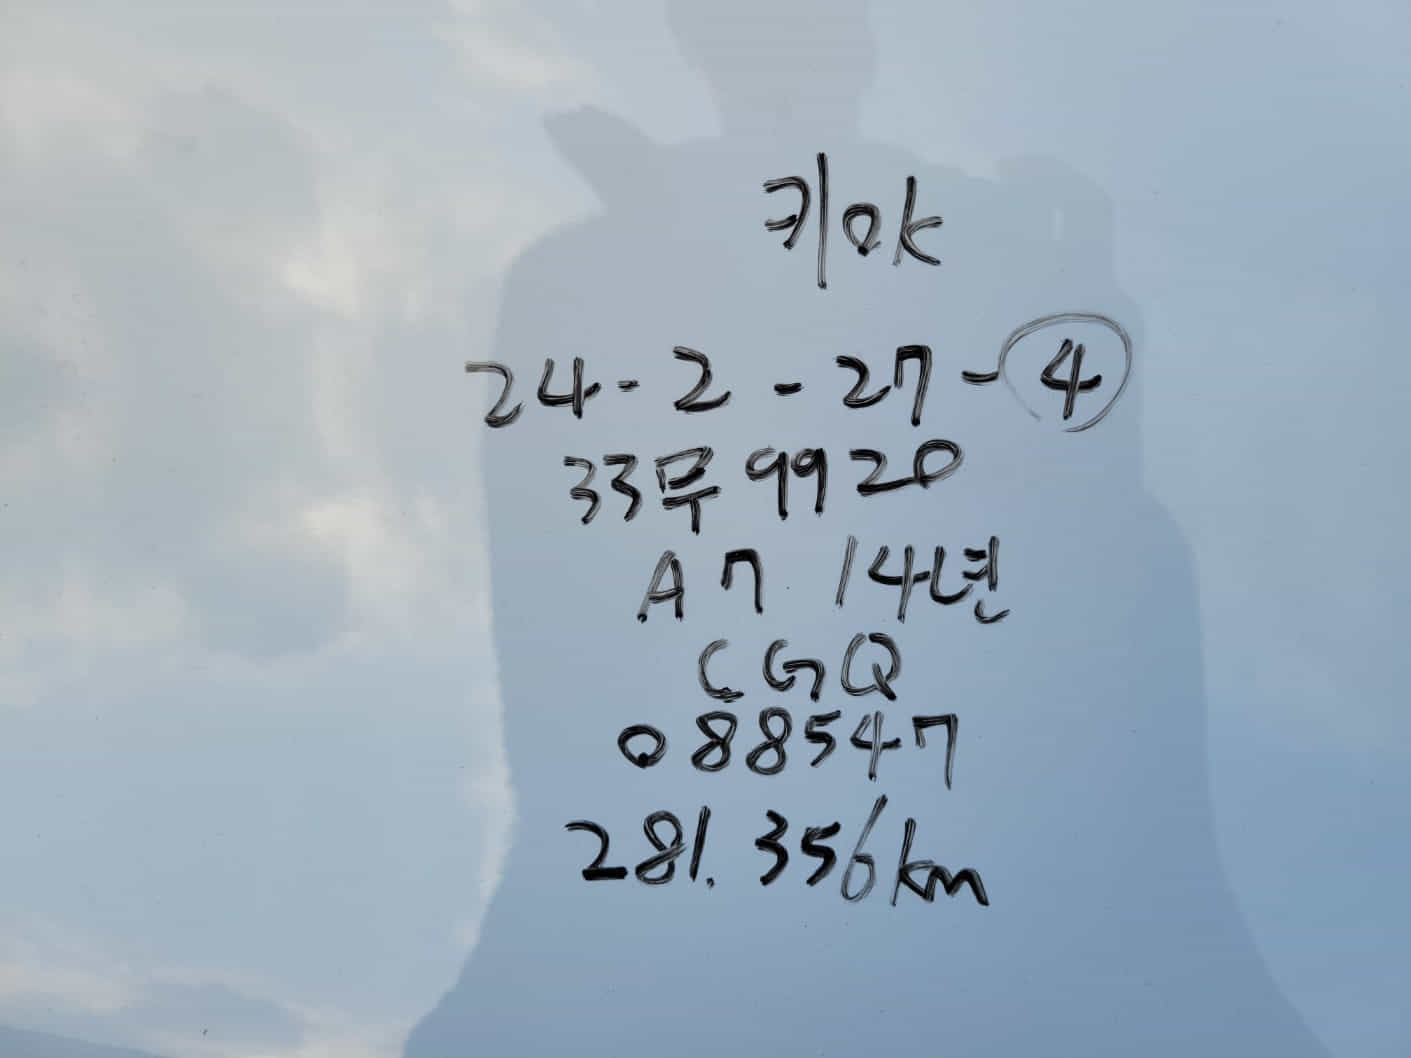 키OK
24-2-27-④
33무9920
A7 14년
CGQ
088547
281.356km